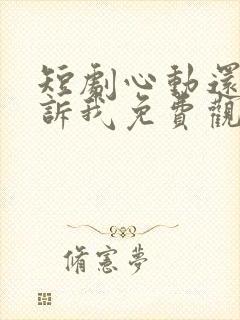 短劇心動還
訴我免費觀
脩憲夢